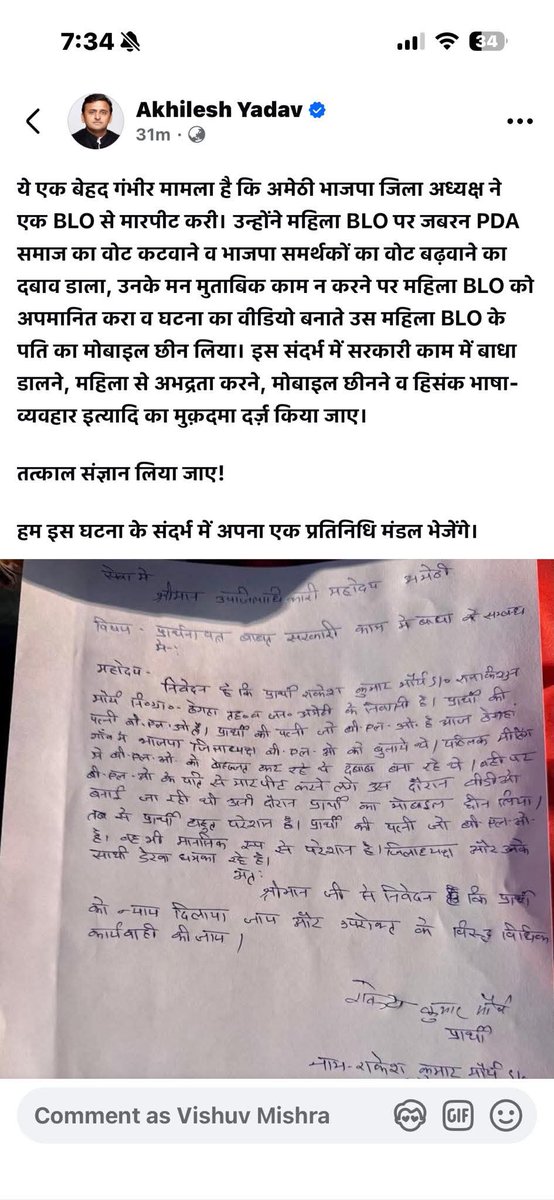 7:34
34
Akhilesh Yadav
31m ·
ये एक बेहद गंभीर मामला है कि अमेठी भाजपा जिला अध्यक्ष ने
एक BLO से मारपीट करी। उन्होंने महिला BLO पर जबरन PDA
समाज का वोट कटवाने व भाजपा समर्थकों का वोट बढ़वाने का
दबाव डाला, उनके मन मुताबिक काम न करने पर महिला BLO को
अपमानित करा व घटना का वीडियो बनाते उस महिला BLO के
पति का मोबाइल छीन लिया। इस संदर्भ में सरकारी काम में बाधा
डालने, महिला से अभद्रता करने, मोबाइल छीनने व हिसंक भाषा-
व्यवहार इत्यादि का मुक़दमा दर्ज़ किया जाए।
तत्काल संज्ञान लिया जाए!
हम इस घटना के संदर्भ में अपना एक प्रतिनिधि मंडल भेजेंगे।
सेवा मे
श्रीमान उपजिलाधिकारी महोदय अमेठी
विषय - प्रार्थना पत्र बाबत सरकारी काम मे बाधा के सम्बन्ध
मे-:
महोदय-
निवेदन है कि प्रार्थी राकेश कुमार मौर्य S/o
मौर्य नि०ग्रा० ठेगहा अमेठी के निवासी है। प्रार्थी की
पत्नी बी.एल.ओ है। प्रार्थी की पत्नी जो बी.एल.ओ. है
गाँव मे भाजपा जिलाध्यक्ष बी.एल.ओ को बुलाये थे। पब्लिक मीटिंग
मे बी.एल.ओ. को कर रहे थे दबाव बना रहे थे। वही पर
बी.एल.ओ के पति से मारपीट करने लगे उस दौरान वीडीओ
बनाई जा रही थी उसी दौरान प्रार्थी का मोबाइल छीन लिया।
तब से प्रार्थी बहुत परेशान है। प्रार्थी की पत्नी जो बी.एल.ओ.
है। वह भी मानसिक रूप से परेशान है। जिलाध्यक्ष और उनके
साथी डेरवा धमका रहे है।
अतः
श्रीमान जी से निवेदन है कि प्रार्थी
को न्याय दिलाया जाय और उपरोक्त के विरुद्ध विधिक
कार्यवाही की जाय।
राकेश कुमार मौर्य
प्रार्थी
नाम-राकेश कुमार मौर्य S/o
Comment as Vishuv Mishra
GIF